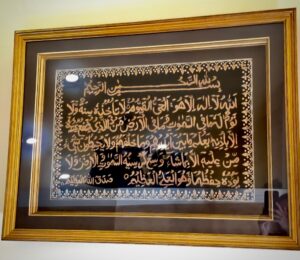 بسم الله الرحمن الرحيم
الله لا اله الا هو الحي القيوم لا تأخذه سنة ولا
نوم له ما في السموات وما في الارض من ذا الذي يشفع عنده
الا باذنه يعلم ما بين ايديهم وما خلفهم ولا يحيطون بشيء
من علمه الا بما شاء وسع كرسيه السموات والارض ولا
يؤده حفظهما وهو العلي العظيم صدق الله العظيم